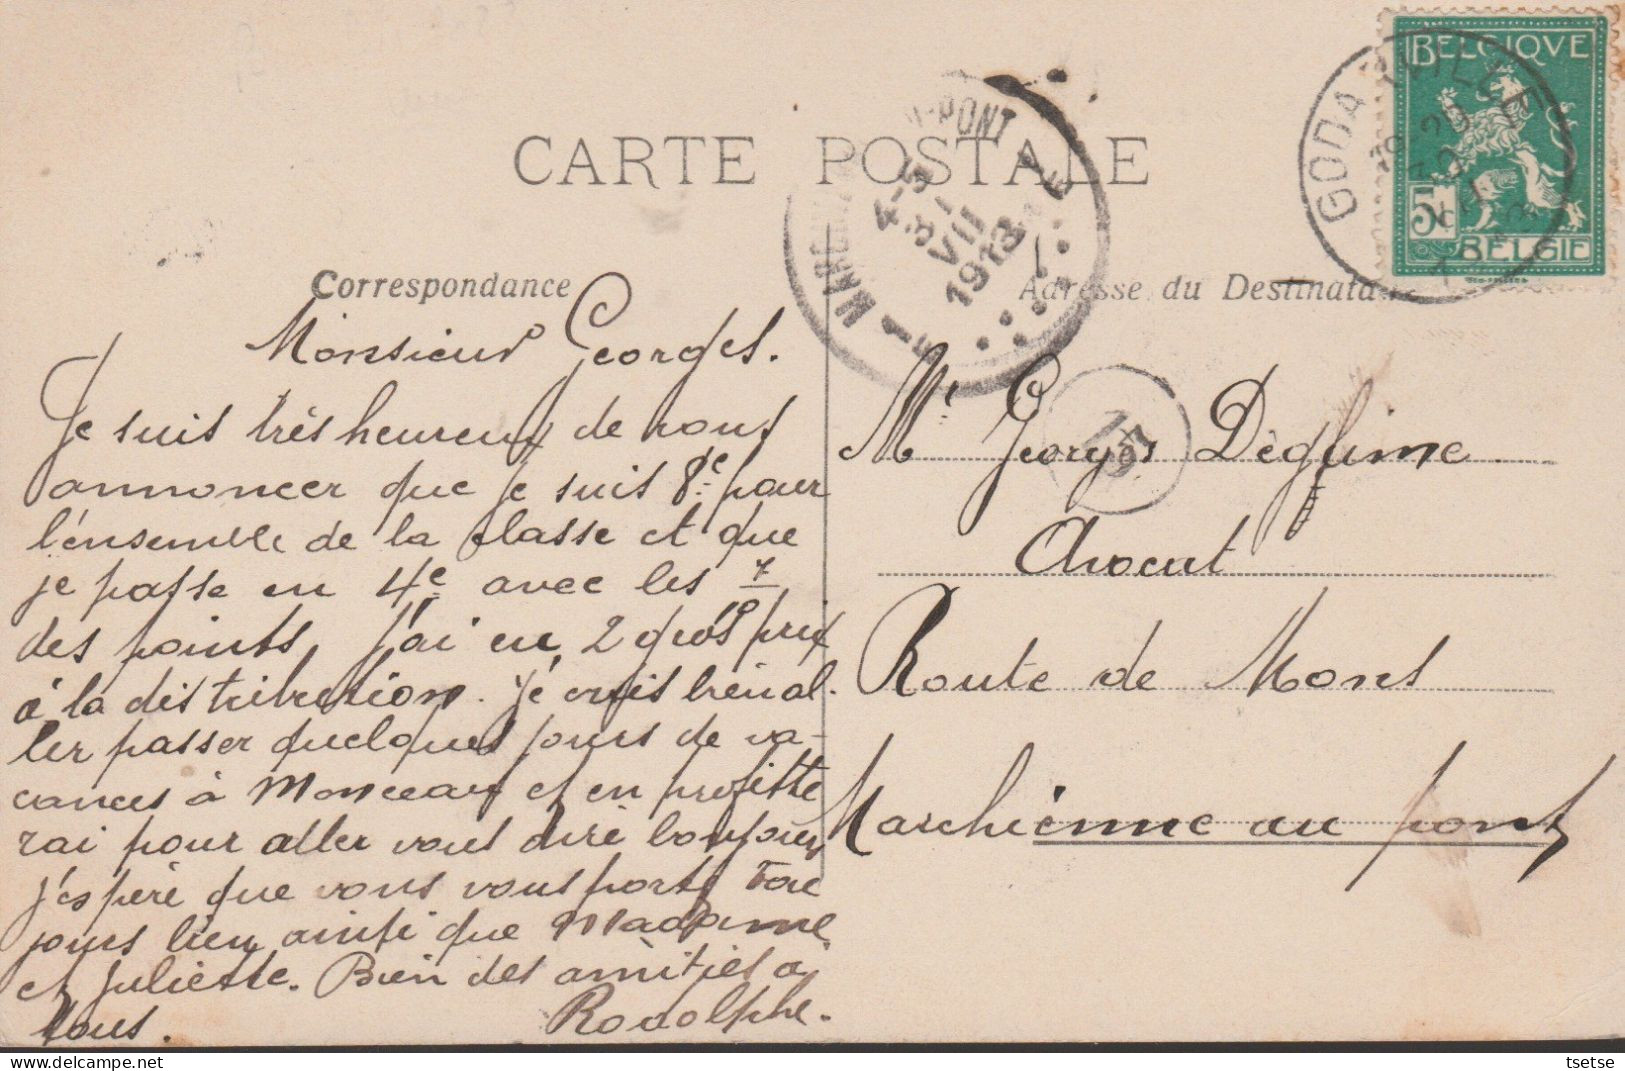 BELGIQVE
5c
BELGIE
GODARVILLE
PONT
4-5
31
VII
1913
CARTE POSTALE
Correspondance
Adresse du Destinata
Monsieur Georges.
Je suis très heureux de vous
annoncer que je suis 8e pour
l'ensemble de la classe et que
je passe en 4e avec les 7/10
des points. J'ai eu 2 gros prix
à la distribution. Je crois bien al-
ler passer quelques jours de va-
cances à Monceau et en profitte
rai pour aller vous dire bonjour
j'espère que vous vous porté tou
jours bien ainsi que Madame
et Juliette. Bien des amitiés à
tous.
Rodolphe.
Mr Georges Deglime
Avocat
Route de Mons
Marchienne au pont
tsetse